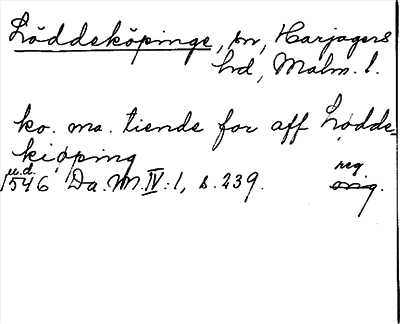 Löddeköpinge, sn, Harjagers
hd, Malm. l.
ko. ma. tiende for aff Lødde-
kiøping
u.d.
1546 Da. M. IV:1, s. 239.
reg
orig.